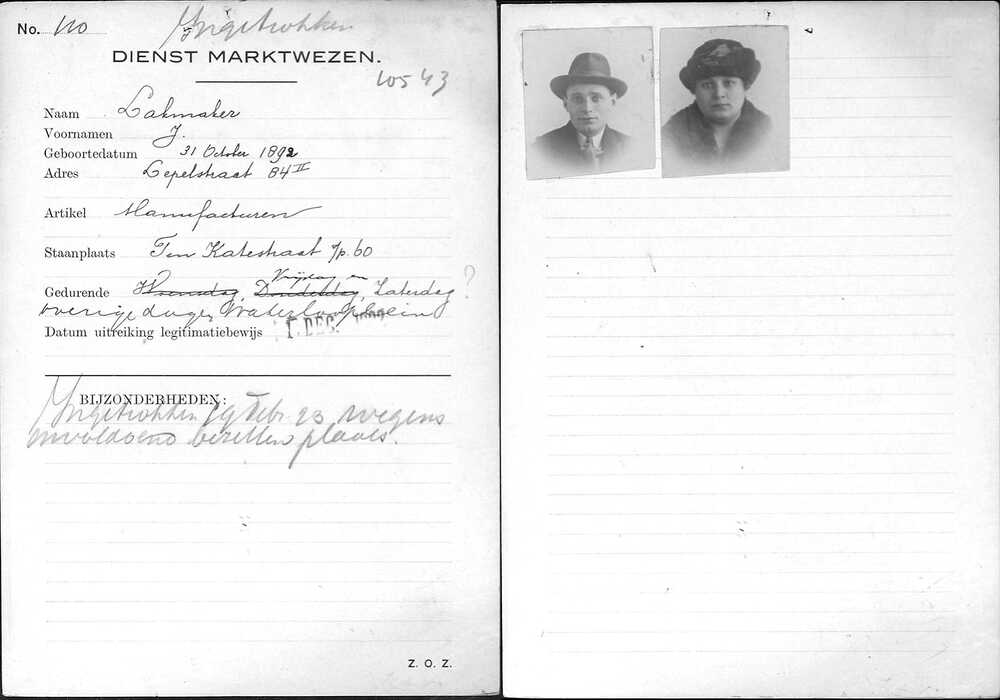 No. 110 Ingetrokken
DIENST MARKTWEZEN.
10543
Naam Lakmaker
Voornamen J.
Geboortedatum 31 October 1892
Adres Lepelstraat 84 II
Artikel Manufacturen
Staanplaats Ten Katestraat s/p. 60
Vrijdag en
Gedurende Woensdag, Donderdag, Zaterdag ?
overige dagen Waterlooplein
Datum uitreiking legitimatiebewijs 1. DEC.
BIJZONDERHEDEN:
Ingetrokken 19 Febr. 23 wegens
onvoldoend bezetten plaats.
Z. O. Z.